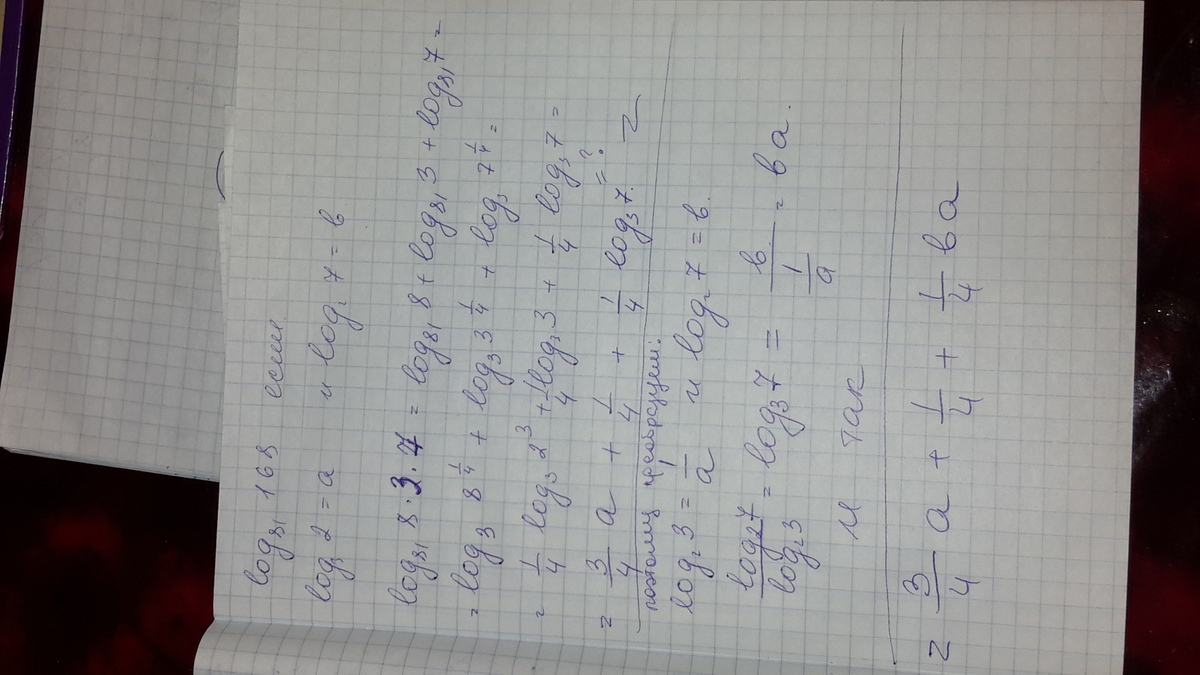 log₈₁ 168 если
log₃ 2 = a и log₂ 7 = в
log₈₁ 8·3·7 = log₈₁ 8 + log₈₁ 3 + log₈₁ 7 =
= log₃ 8^(1/4) + log₃ 3^(1/4) + log₃ 7^(1/4) =
= 1/4 log₃ 2³ + 1/4 log₃ 3 + 1/4 log₃ 7 =
= 3/4 a + 1/4 + 1/4 log₃ 7. = ? =
поэтому преобразуем:
log₂ 3 = 1/a и log₂ 7 = в.
log₂ 7 / log₂ 3 = log₃ 7 = в / (1/a) = вa.
и так
= 3/4 a + 1/4 + 1/4 вa